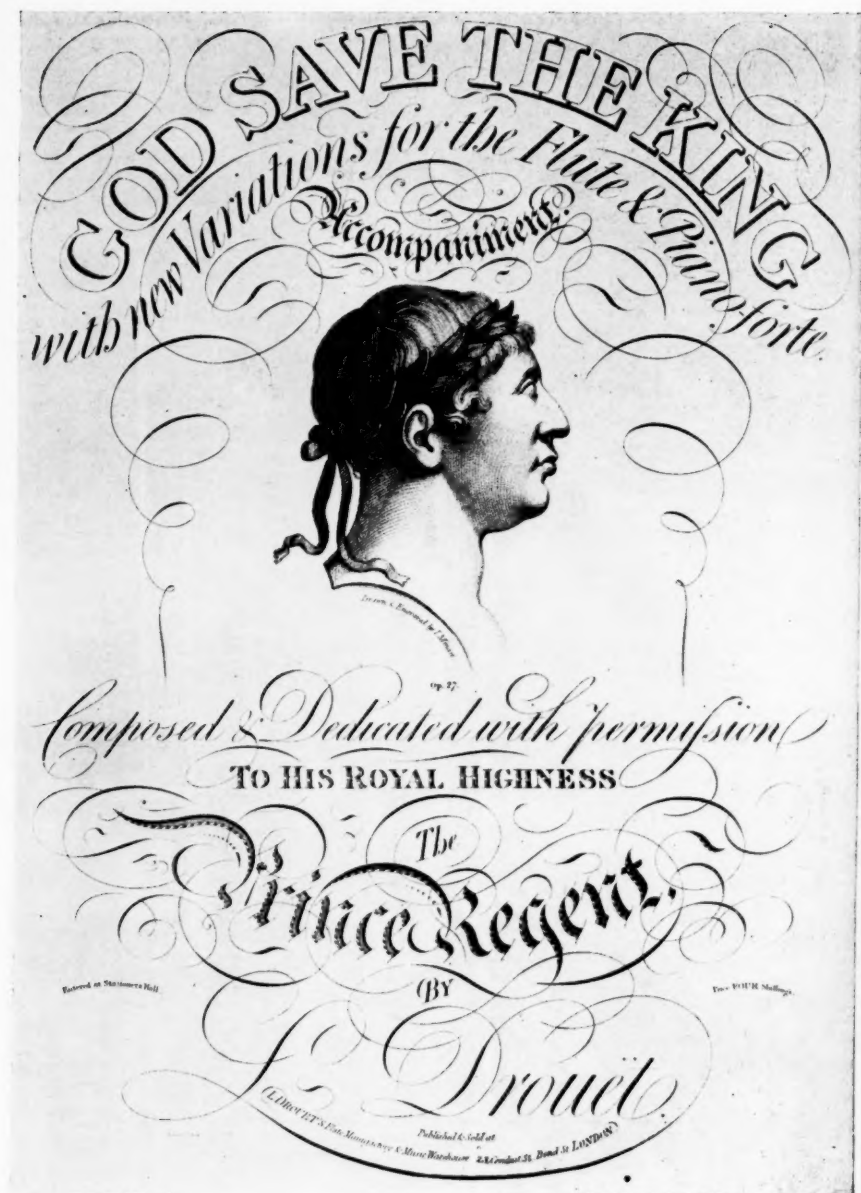 GOD SAVE THE KING
with new Variations for the Flute & Piano-forte.
Accompaniment.
Drawn & Engraved by
Op. 27.
Composed & Dedicated with permiſsion
TO HIS ROYAL HIGHNESS
The
Prince Regent.
BY
Entered at Stationers Hall
Price FOUR Shillings.
L. Drouët
Published & Sold at
(L. DROUET'S Flute Manufactory & Music Warehouse Conduit St. Bond St. LONDON)